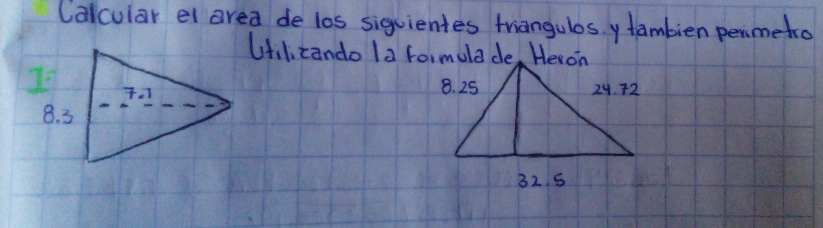 Calcular el area de los siguientes triangulos y tambien perimetro
Utilizando la formula de Herón
1:
7.1
8.3
8.25
24.72
32.5